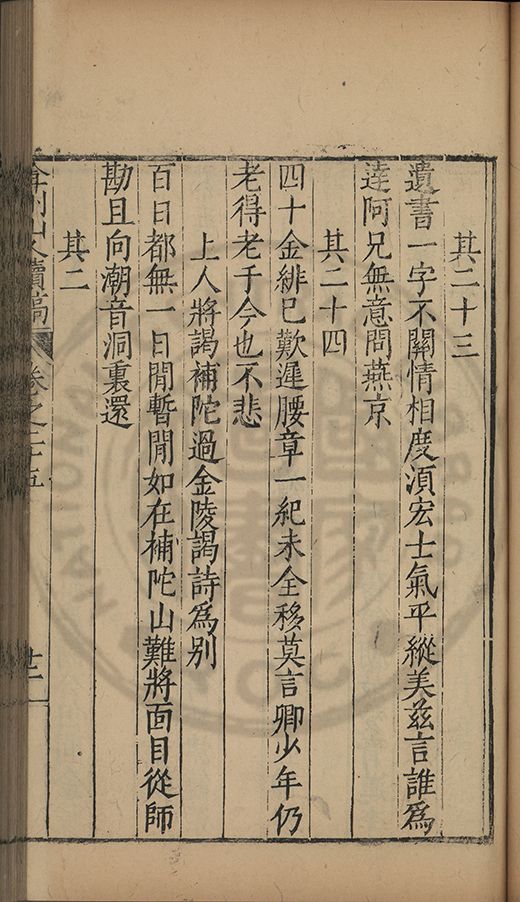 其二十三
遺書一字不關情相度湏宏士氣平縱美茲言誰爲
達阿兄無意問燕京
其二十四
四十金緋已歎遲腰章一紀未全移莫言卿少年仍
老得老于今也不悲
上人將謁補陀過金陵謁詩爲別
百日都無一日閒暫閒如在補陀山難將面目從師
勘且向潮音洞裏還
其二
山人續稿 卷之二十五